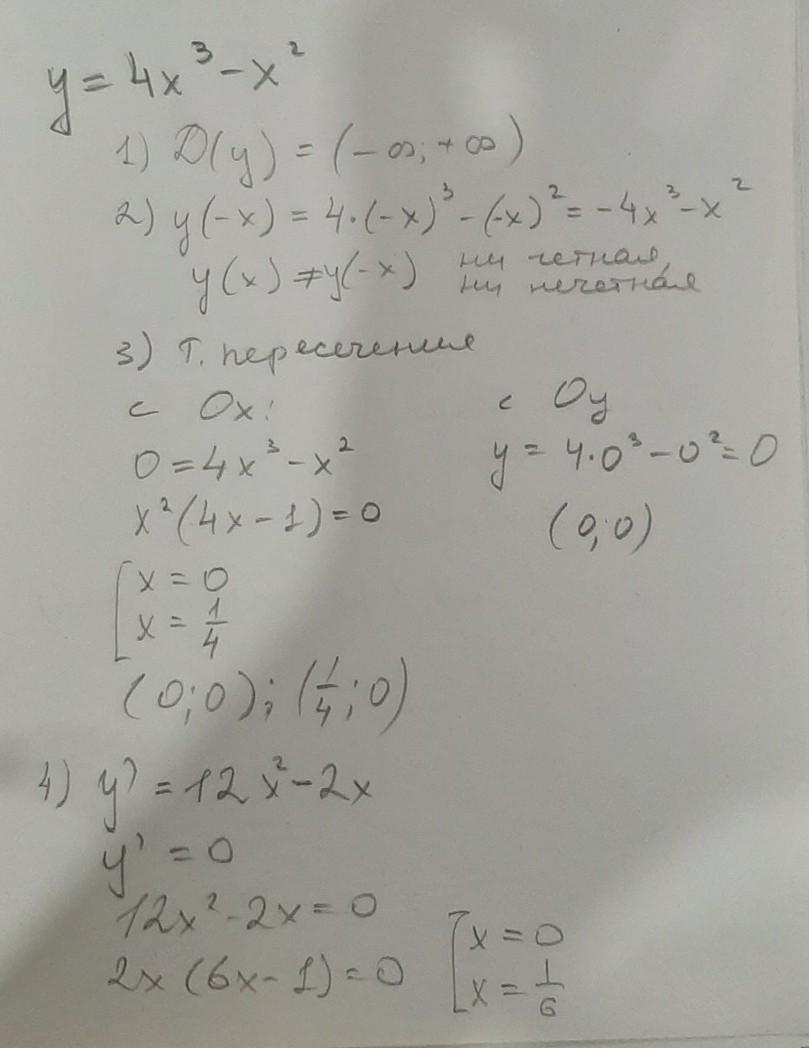 y = 4x³ - x²
1) D(y) = (-∞; +∞)
2) y(-x) = 4·(-x)³ - (-x)² = -4x³ - x²
y(x) ≠ y(-x) ни четная,
ни нечетная
3) т. пересечения
с Ox:
с Oy
0 = 4x³ - x²
y = 4·0³ - 0² = 0
x²(4x - 1) = 0
(0; 0)
[ x = 0
x = 1/4
(0; 0); (1/4; 0)
4) y' = 12x² - 2x
y' = 0
12x² - 2x = 0
2x (6x - 1) = 0
[ x = 0
x = 1/6